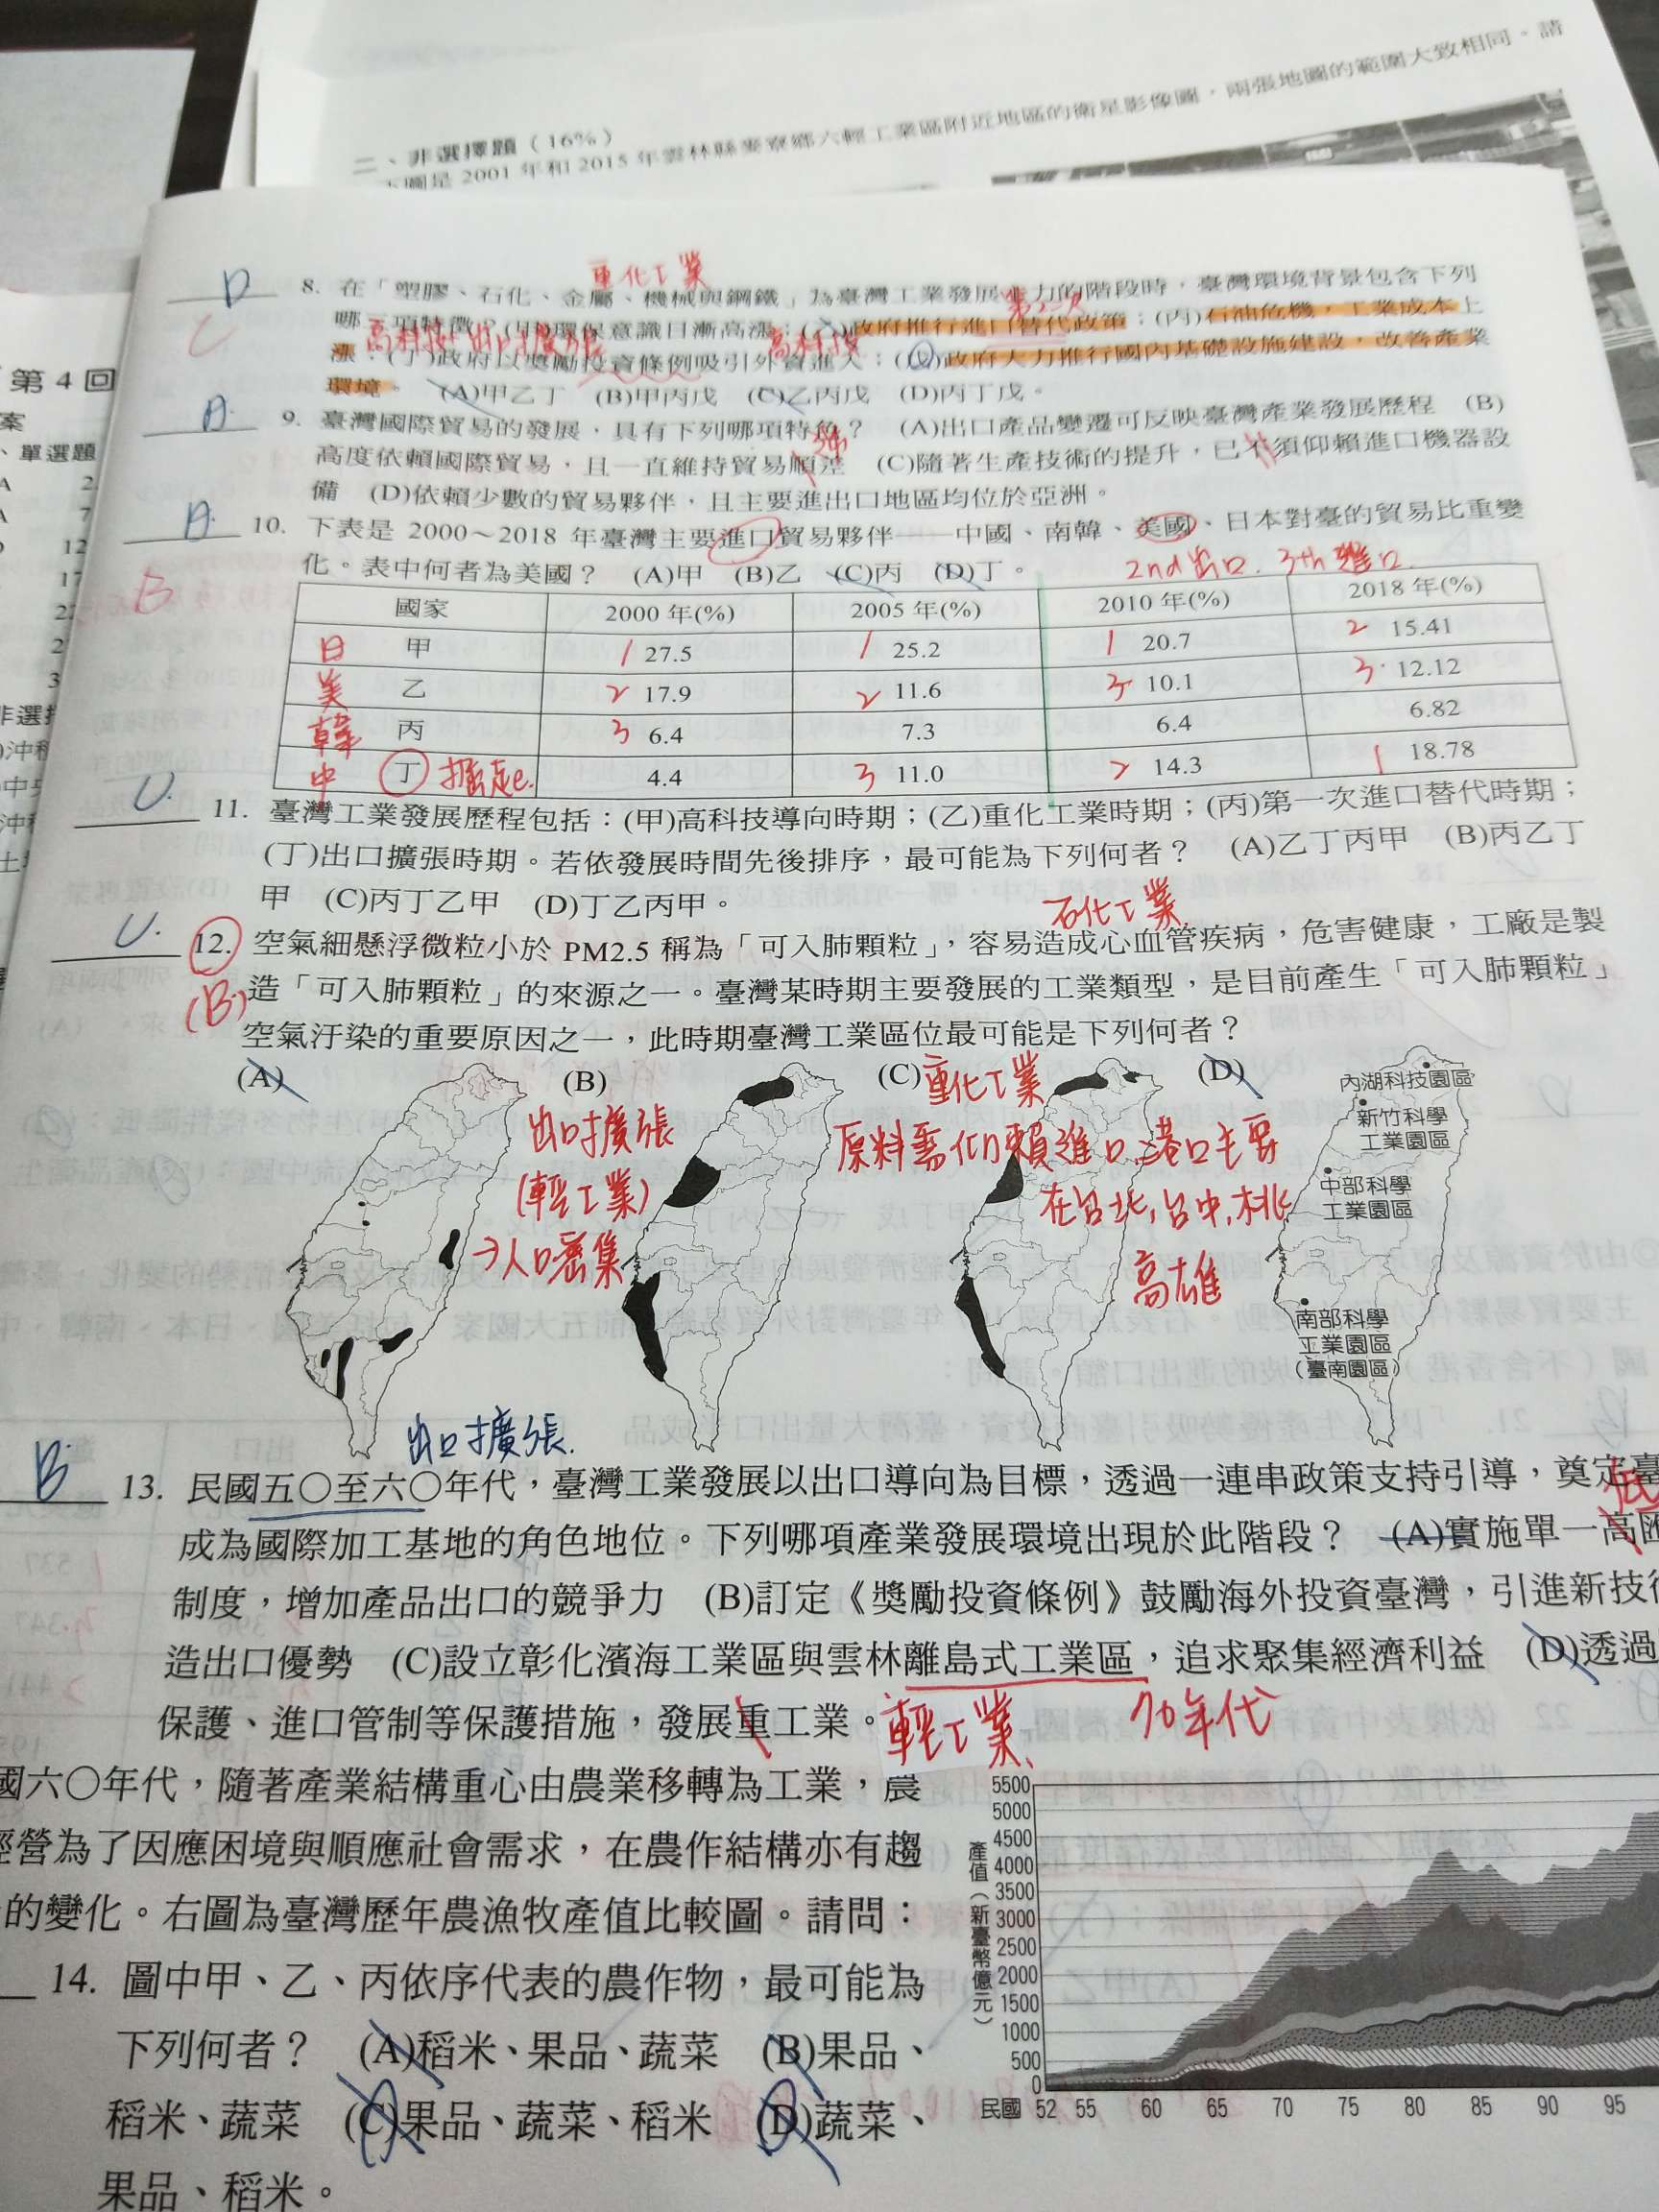 二、非選擇題（16%）
下圖是 2001 年和 2015 年雲林縣麥寮鄉六輕工業區附近地區的衛星影像圖，兩張地圖的範圍大致相同。請
第 4 回
案
、單選題
A 2
A 7
12
17
22
2
3
非選擇
重化工業
D 8. 在「塑膠、石化、金屬、機械與鋼鐵」為臺灣工業發展主力的階段時，臺灣環境背景包含下列
第二次
C 哪三項特徵？(甲)環保意識日漸高漲；(乙)政府推行進口替代政策；(丙)石油危機，工業成本上
高科技 出口擴張 高科技
漲；(丁)政府以獎勵投資條例吸引外資進入；(戊)政府大力推行國內基礎設施建設，改善產業
環境。 (A)甲乙丁 (B)甲丙戊 (C)乙丙戊 (D)丙丁戊。
A 9. 臺灣國際貿易的發展，具有下列哪項特色？ (A)出口產品變遷可反映臺灣產業發展歷程 (B)
高度依賴國際貿易，且一直維持貿易順差 (C)隨著生產技術的提升，已不須仰賴進口機器設
備 (D)依賴少數的貿易夥伴，且主要進出口地區均位於亞洲。
A 10. 下表是 2000～2018 年臺灣主要進口貿易夥伴——中國、南韓、美國、日本對臺的貿易比重變
化。表中何者為美國？ (A)甲 (B)乙 (C)丙 (D)丁。
2nd 出口. 3th 進口.
B
國家 2000 年(%) 2005 年(%) 2010 年(%) 2018 年(%)
日 甲 1 27.5 1 25.2 1 20.7 2 15.41
美 乙 2 17.9 2 11.6 3 10.1 3 12.12
韓 丙 3 6.4 7.3 6.4 6.82
中 丁 4.4 3 11.0 2 14.3 1 18.78
C. 11. 臺灣工業發展歷程包括：(甲)高科技導向時期；(乙)重化工業時期；(丙)第一次進口替代時期；
(丁)出口擴張時期。若依發展時間先後排序，最可能為下列何者？ (A)乙丁丙甲 (B)丙乙丁
甲 (C)丙丁乙甲 (D)丁乙丙甲。
石化工業
C. 12. 空氣細懸浮微粒小於 PM2.5 稱為「可入肺顆粒」，容易造成心血管疾病，危害健康，工廠是製
(B) 造「可入肺顆粒」的來源之一。臺灣某時期主要發展的工業類型，是目前產生「可入肺顆粒」
空氣汙染的重要原因之一，此時期臺灣工業區位最可能是下列何者？
(A) (B) (C) (D)
出口擴張
(輕工業)
→人口密集
重化工業
原料需仰賴進口,港口主要
在台北,台中,桃
高雄
內湖科技園區
新竹科學
工業園區
中部科學
工業園區
南部科學
工業園區
（臺南園區）
出口擴張.
B 13. 民國五○至六○年代，臺灣工業發展以出口導向為目標，透過一連串政策支持引導，奠定臺
低
成為國際加工基地的角色地位。下列哪項產業發展環境出現於此階段？ (A)實施單一高匯
制度，增加產品出口的競爭力 (B)訂定《獎勵投資條例》鼓勵海外投資臺灣，引進新技術
造出口優勢 (C)設立彰化濱海工業區與雲林離島式工業區，追求聚集經濟利益 (D)透過
保護、進口管制等保護措施，發展重工業。
輕工業 70年代
國六○年代，隨著產業結構重心由農業移轉為工業，農
經營為了因應困境與順應社會需求，在農作結構亦有趨
的變化。右圖為臺灣歷年農漁牧產值比較圖。請問：
14. 圖中甲、乙、丙依序代表的農作物，最可能為
下列何者？ (A)稻米、果品、蔬菜 (B)果品、
稻米、蔬菜 (C)果品、蔬菜、稻米 (D)蔬菜、
果品、稻米。
產值（新臺幣億元）
5500
5000
4500
4000
3500
3000
2500
2000
1500
1000
500
0
民國 52 55 60 65 70 75 80 85 90 95